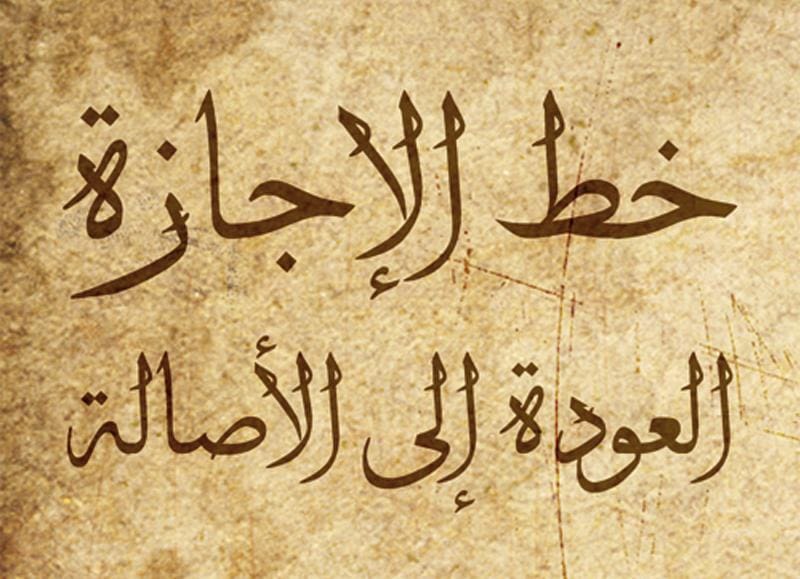 خط الإجازة
العودة إلى الأصالة